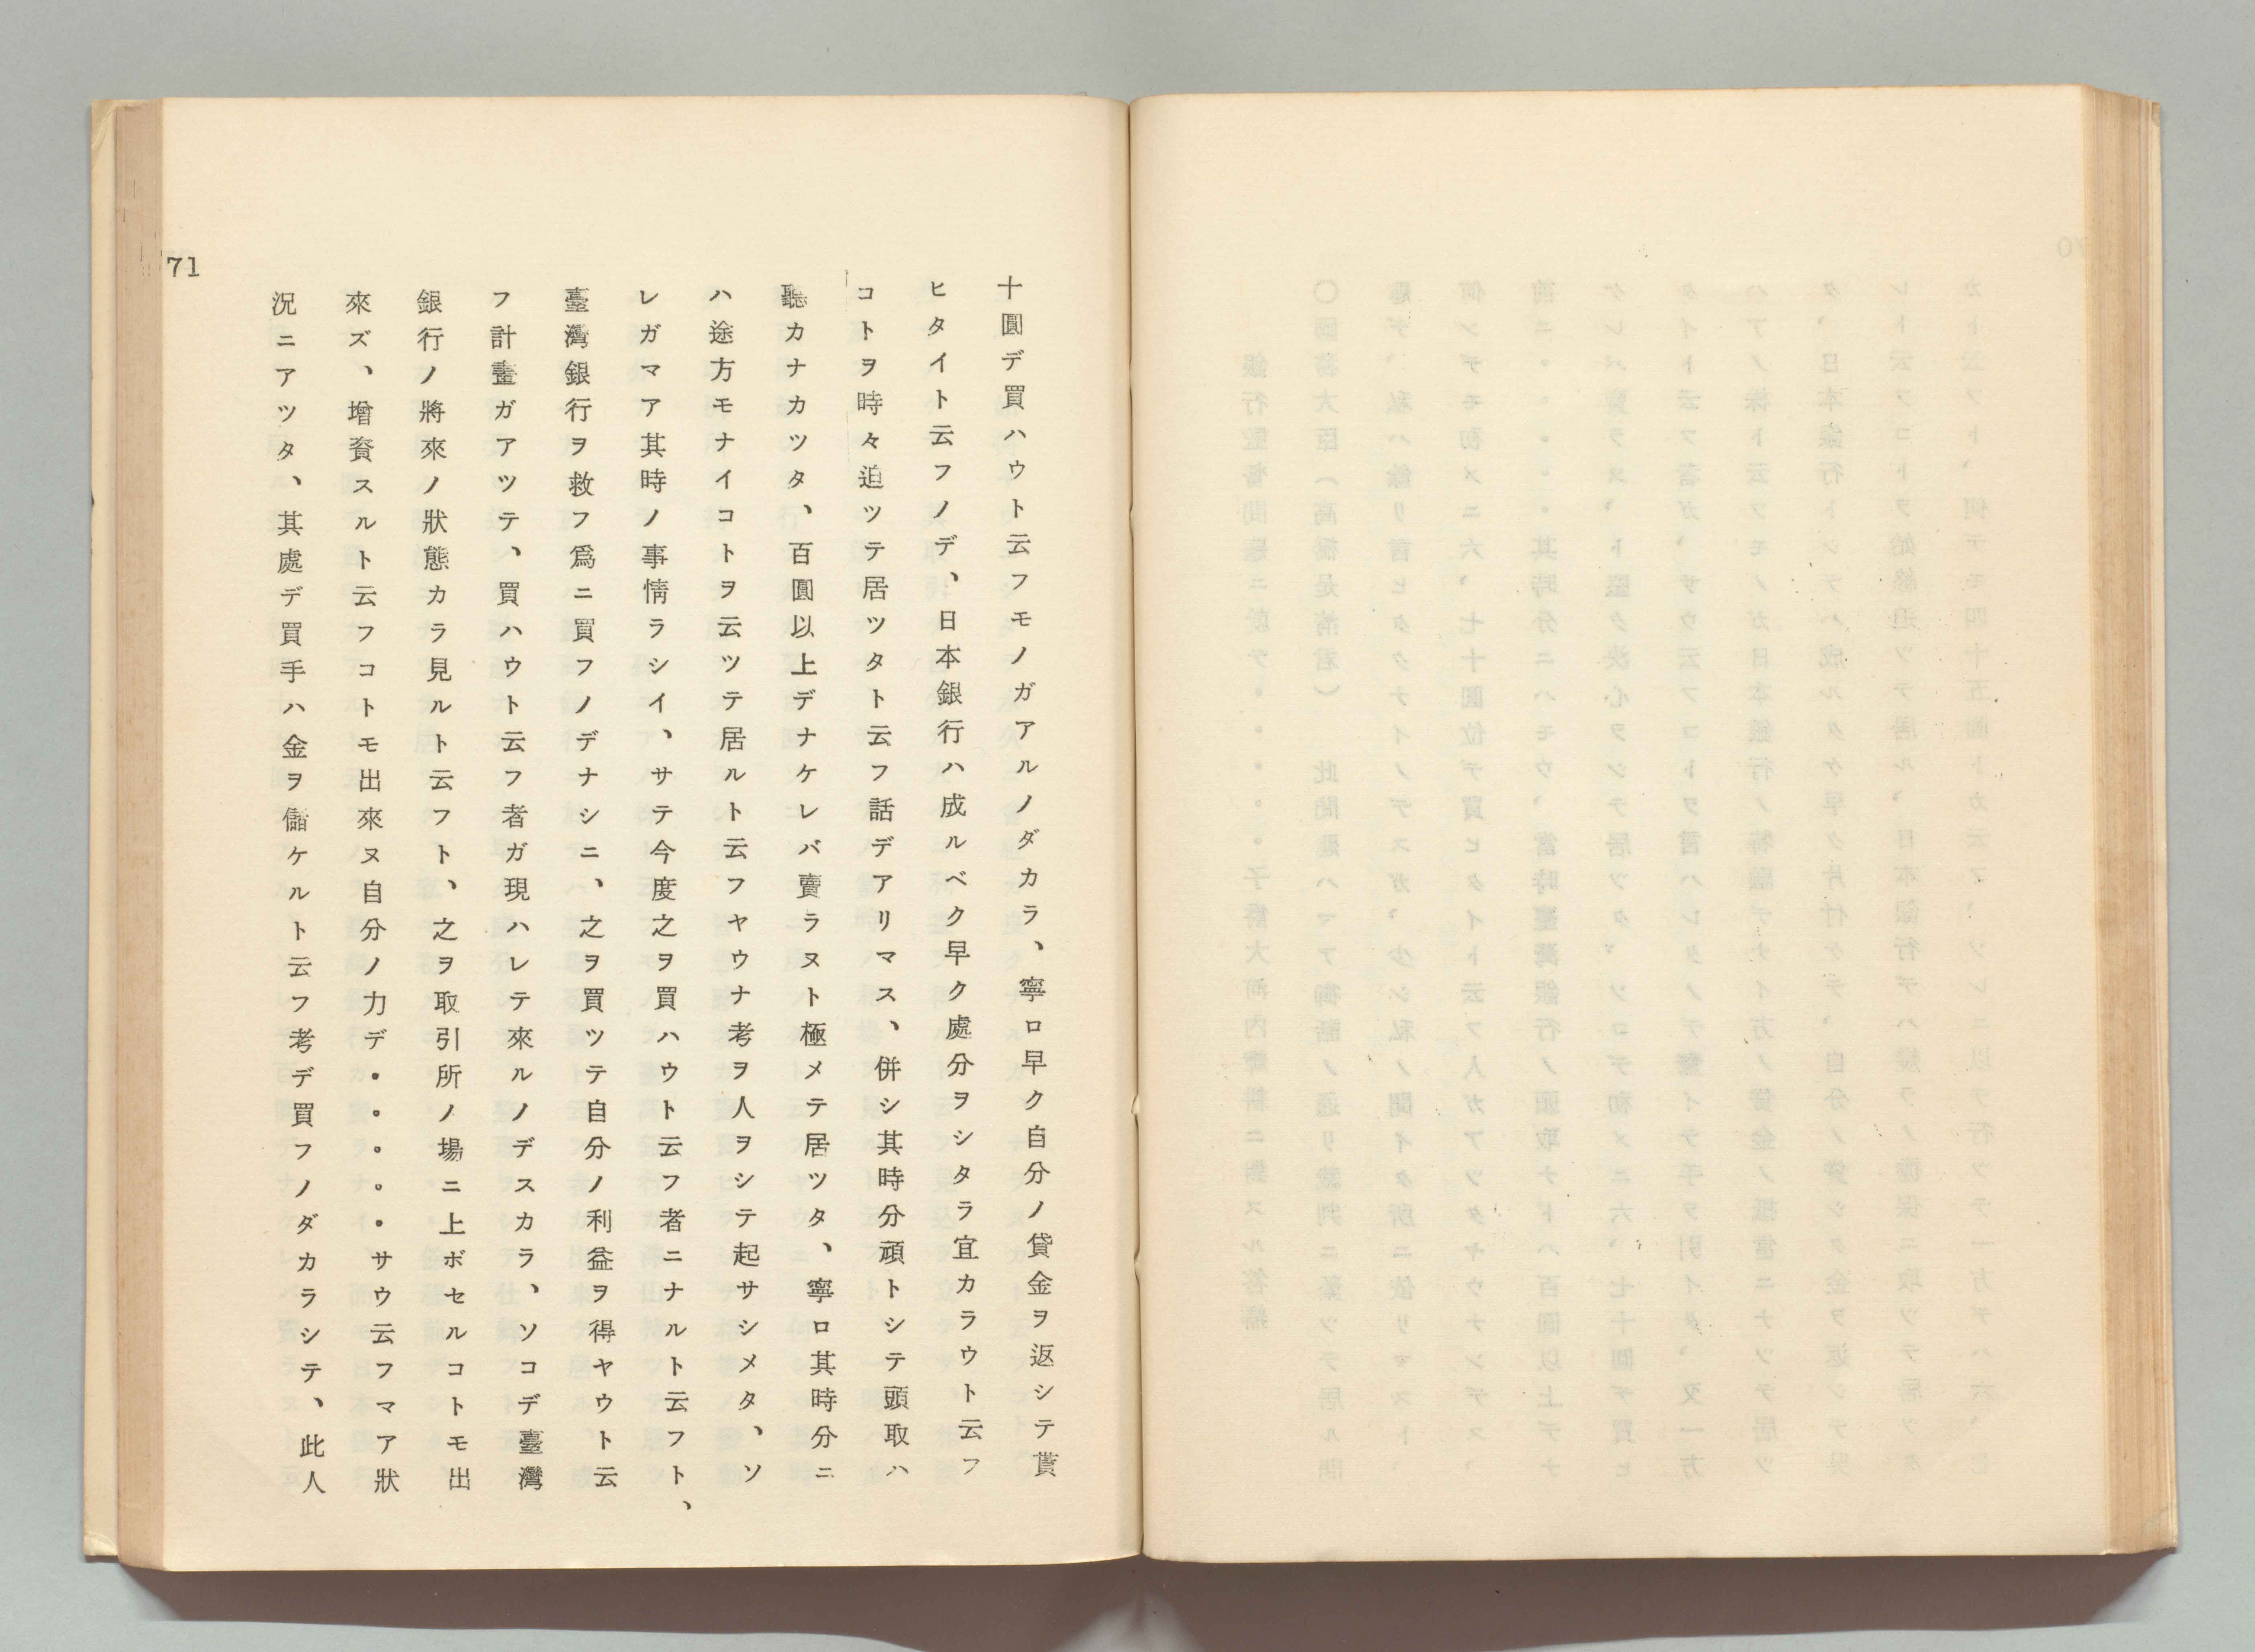 十圓デ買ハウト云フモノガアルノダカラ、寧ロ早ク自分ノ貸金ヲ返シテ貰
ヒタイト云フノデ、日本銀行ハ成ルベク早ク處分ヲシタラ宜カラウト云フ
コトヲ時々迫ツテ居ツタト云フ話デアリマス、併シ其時分頑トシテ頭取ハ
聽カナカツタ、百圓以上デナケレバ賣ラヌト極メテ居ツタ、寧ロ其時分ニ
ハ途方モナイコトヲ云ツテ居ルト云フヤウナ考ヲ人ヲシテ起サシメタ、ソ
レガマア其時ノ事情ラシイ、サテ今度之ヲ買ハウト云フ者ニナルト云フト、
臺灣銀行ヲ救フ爲ニ買フノデナシニ、之ヲ買ツテ自分ノ利益ヲ得ヤウト云
フ計畫ガアツテ、買ハウト云フ者ガ現ハレテ來ルノデスカラ、ソコデ臺灣
銀行ノ將來ノ狀態カラ見ルト云フト、之ヲ取引所ノ場ニ上ボセルコトモ出
來ズ、增資スルト云フコトモ出來ヌ自分ノ力デ。。。。。サウ云フマア狀
況ニアツタ、其處デ買手ハ金ヲ儲ケルト云フ考デ買フノダカラシテ、此人
71